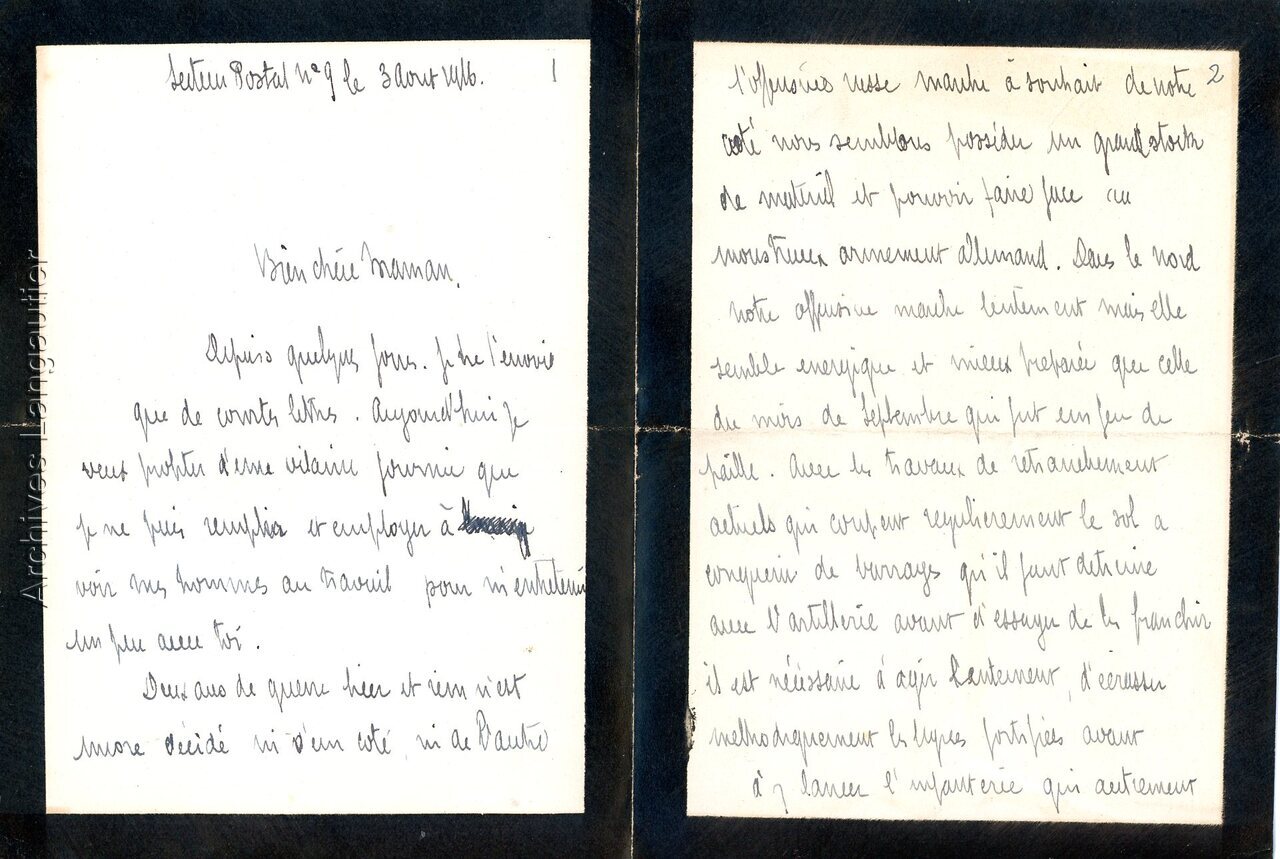 Secteur Postal n° 9 le 3 Aout 1916. 1
Bien chère Maman,
Depuis quelques jours. Je ne t'envoie
que de courtes lettres. Aujourd'hui je
veux profiter d'une vilaine journée que
je ne puis remplir et employer à
voir mes hommes au travail pour m'entretenir
un peu avec toi.
Deux ans de guerre hier et rien n'est
encore décidé ni d'un coté, ni de l'autre
2
l'offensive russe marche à souhait de notre
coté nous semblons posséder un grand stock
de matériel et pouvoir faire face au
monstrueux armement allemand. Dans le nord
notre offensive marche lentement mais elle
semble energique et mieux preparée que celle
du mois de Septembre qui fut un feu de
paille. Avec les travaux de retranchement
actuels qui coupent regulierement le sol a
conquerir de barrages qu'il faut detruire
avec l'artillerie avant d'essayer de les franchir
il est nécéssaire d'agir lentement, d'écraser
methodiquement les lignes fortifiées avant
d'y lancer l'infanterie qui autrement
Archives Langautier